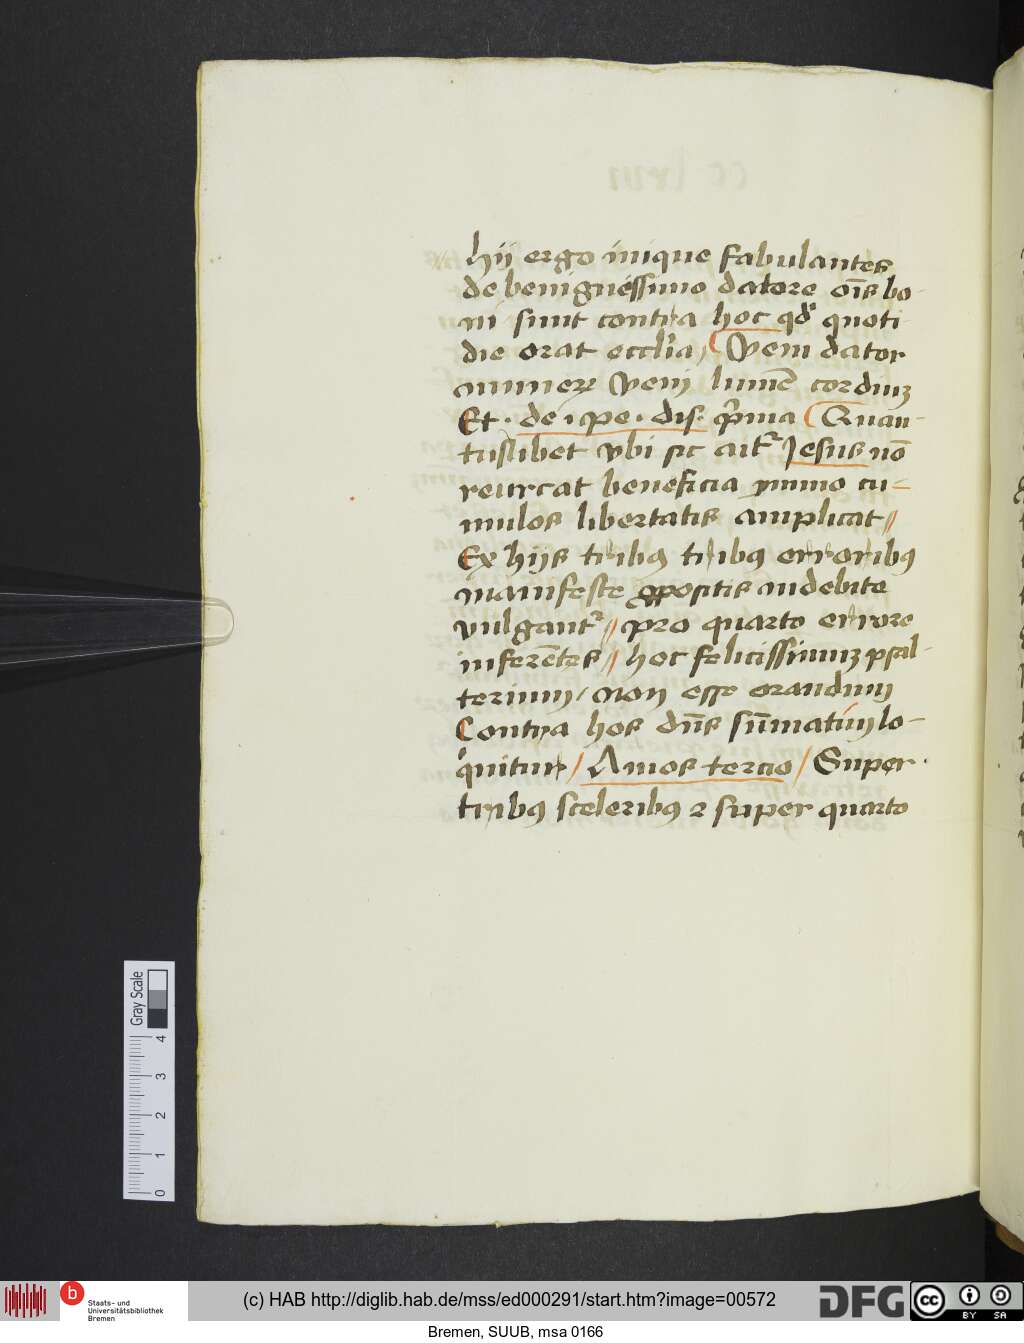 hij ergo inique fabulantes
de benignissimo datore oīs bo-
ni sunt contra hoc qd' quoti
die orat eccl'ia / Veni dator
munerꝝ Veni lumē cordiuꝫ
Et · de · pe · dis · p'ma Quan-
tuslibet vbi sic ait' Jesus nō
beneficia ymmo cu-
mulos libertatis amplicat //
Ex hijs tribꝰ tribꝰ erroribꝰ
manifeste ꝓpositis indebite
vulgant' // pro quarto errore
inferētes // hoc felicissimuꝫ psal-
terium / non esse orandum
Contra hos dn̄s sūmatim lo-
quitur / Amos tercio / Super ·
tribꝰ sceleribꝰ ⁊ super quarto
Gray Scale
4
3
2
1
0
b
Staats- und
Universitätsbibliothek
Bremen
(c) HAB http://diglib.hab.de/mss/ed000291/start.htm?image=00572
DFG
cc
BY
SA
Bremen, SUUB, msa 0166